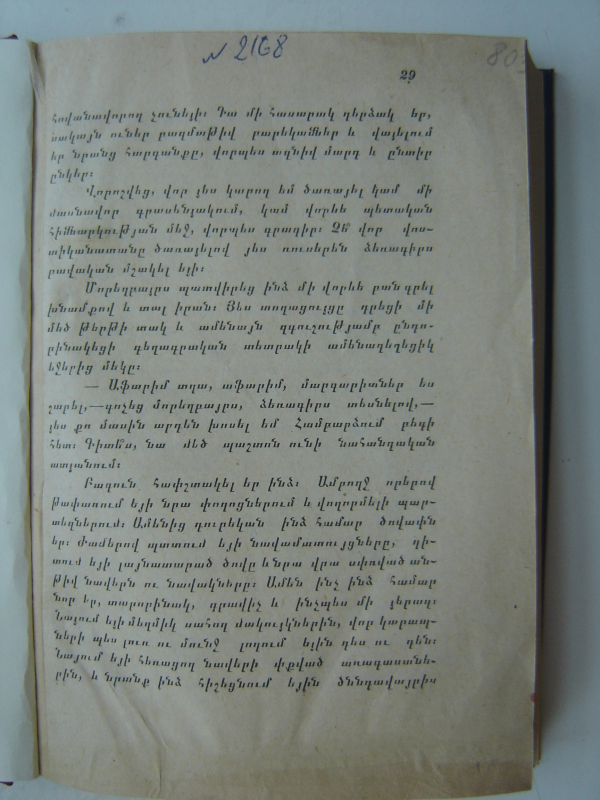 N 2168
80
29
հովանավորող չունելի։ Դա մի հասարակ դերձակ եր,
սակայն ուներ բազմաթիվ բարեկամներ և վայելում
եր նրանց հարգանքը, վորպես ազնիվ մարդ և ընտիր
ընկեր։
Վորոշվեց, վոր յես կարող եմ ծառայել կամ մի
մասնավոր գրասենյակում, կամ վորևե պետական
հիմնարկության մեջ, վորպես գրագիր։ Չե՞ վոր վոս-
տիկանատանը ծառայելով յես ռուսերեն ձեռագիրս
բավական մշակել եյի։
Մորեղբայրս պատվիրեց ինձ մի վորևե բան գրել
խնամքով և տալ իրան։ Յես տողացույցը դրեցի մի
մեծ թերթի տակ և ամենայն զգուշությամբ ընդո-
րինակեցի գեղագրական տետրակի ամենագեղեցիկ
եջերից մեկը։
— Ափարիմ տղա, ափարիմ, մարգարիտներ ես
շարել,—գոչեց մորեղբայրս, ձեռագիրս տեսնելով,—
յես քո մասին արդեն խոսել եմ Համբարձում բեգի
հետ։ Գիտե՞ս, նա մեծ պաշտոն ունի նահանգական
ատյանում։
Բագուն հափշտակել եր ինձ։ Ամբողջ որերով
թափառում եյի նրա փողոցներում և վողորմելի պար-
տեզներում։ Ամենից դուրեկան ինձ համար ծովափն
եր։ Ժամերով պտտում եյի նավամատույցները, դի-
տում եյի լայնատարած ծովը և նրա վրա սփռված ան-
թիվ նավերն ու նավակները։ Ամեն ինչ ինձ համար
նոր եր, տարորինակ, գրավիչ և ինչպես մի յերազ։
Նայում եյի մեղմիկ սահող մակույկներին, վոր կարապ-
ների պես լուռ ու մունջ լողում եյին դես ու դեն։
Նայում եյի հեռացող նավերի փքված առագաստնե-
րին, և նրանք ինձ հիշեցնում եյին ծննդավայրիս